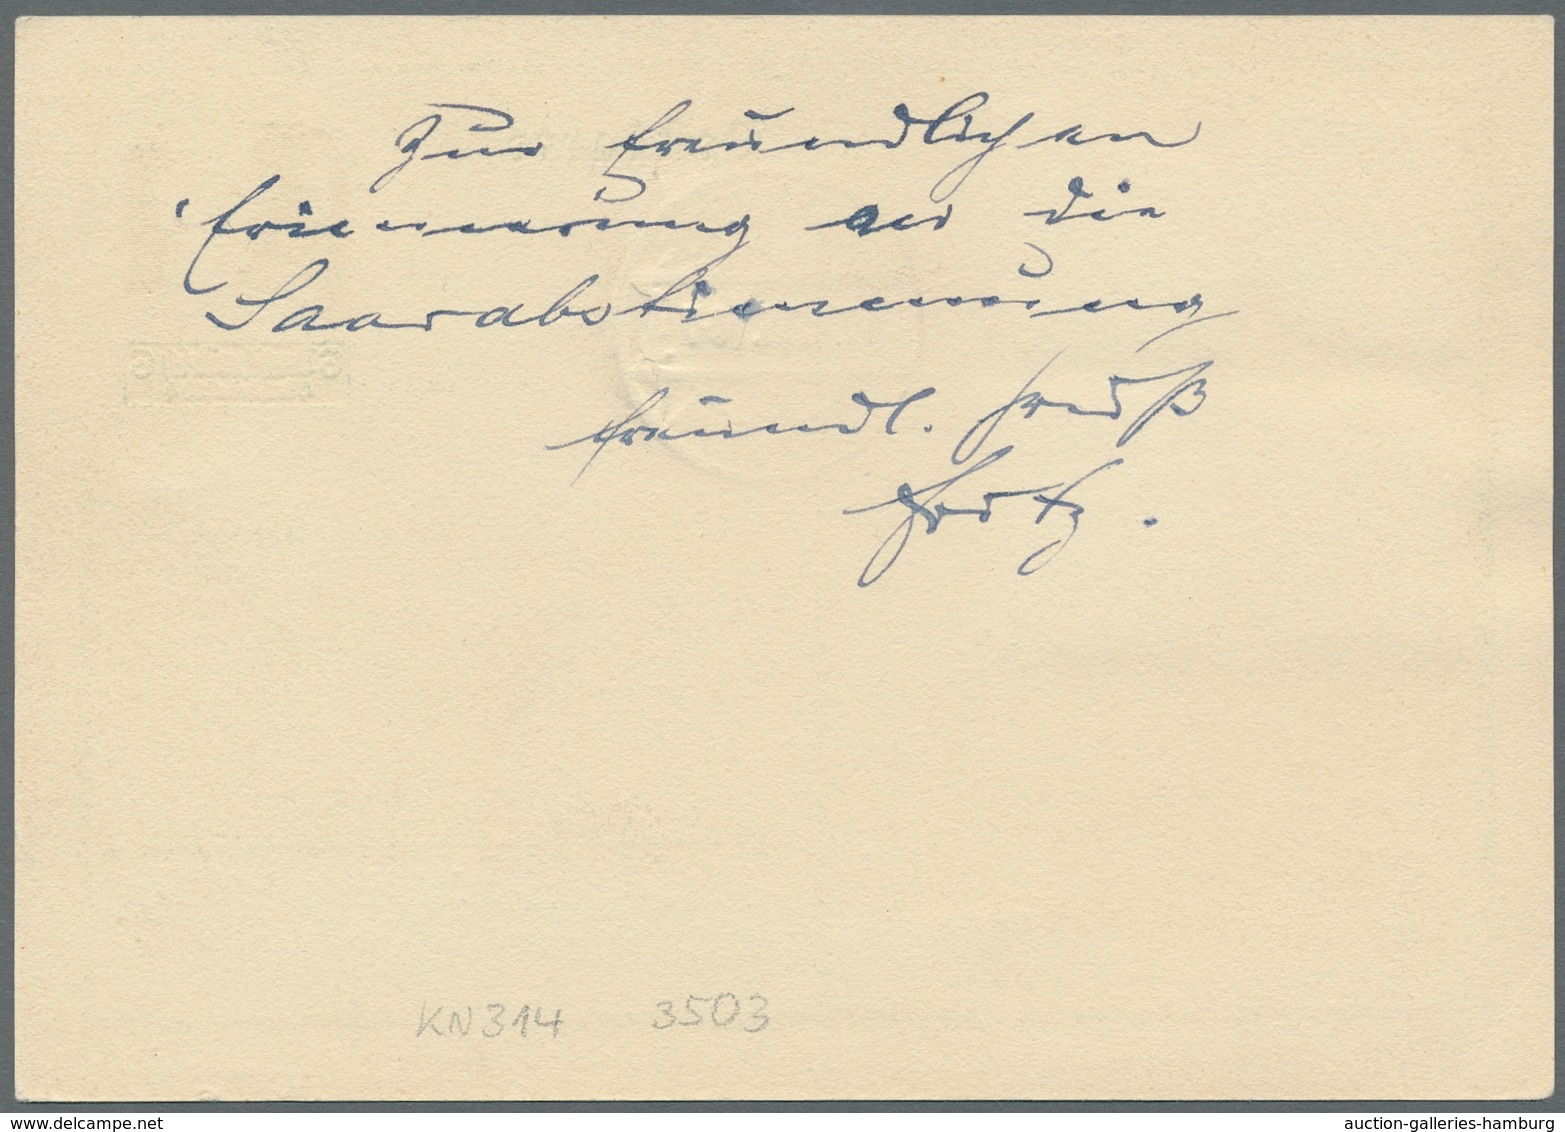 Zur freundlichen
Erinnerung an die
Saarabstimmung
freundl. Gruß
KN314 3503
delcampe.net
auction-galleries-hamburg